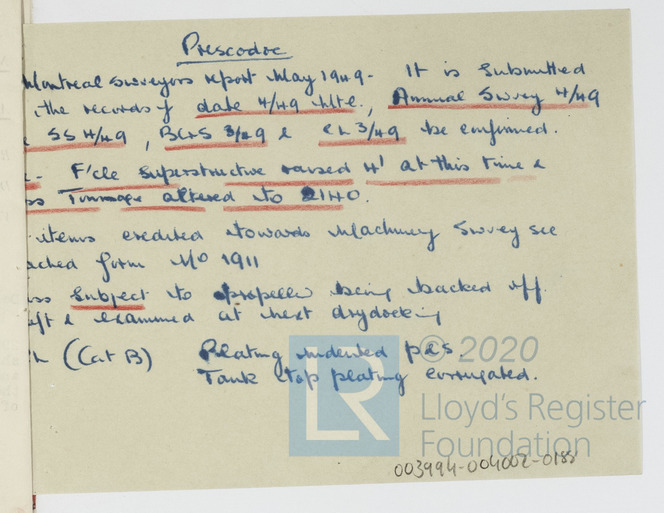 Prescodoc
Montreal Surveyors report May 1949 - It is submitted
the records of date 4/49 Mtl., Annual Survey 4/49
SS 4/49, B&S 3/49 & CL 3/49 be confirmed.
F'cle superstructure raised 4' at this time &
ss Tonnage altered to 2140.
items credited towards Machinery Survey see
ached form No 1911
ss Subject to propeller being backed off
aft & examined at next drydocking
(Cat B) Plating indented p&s.
Tank top plating corrugated.
© 2020
LR
Lloyd's Register
Foundation
003994-004002-0188